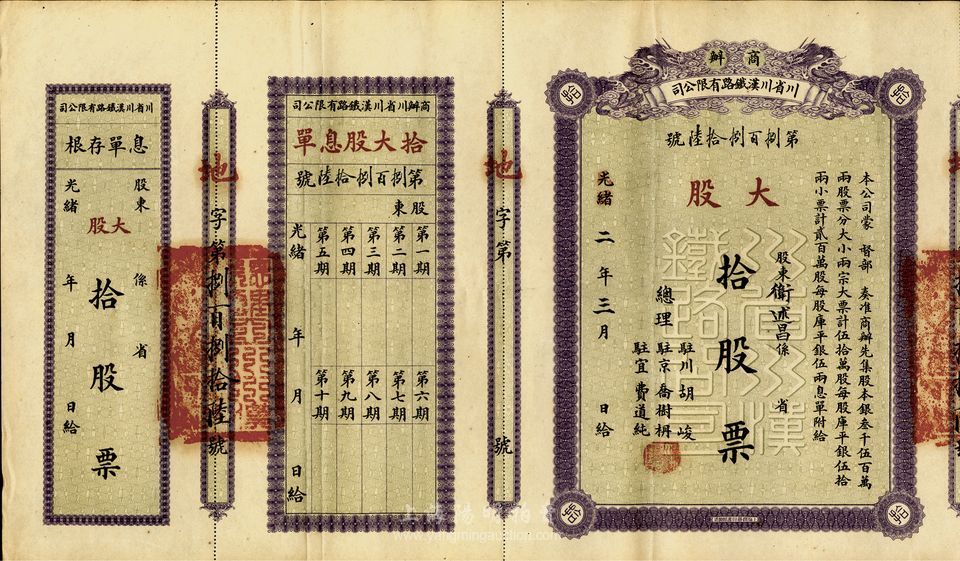 商辦
川省川漢鐵路有限公司
拾
拾
第捌百捌拾陸號
大股
本公司蒙 督部 奏准商辦先集股本銀叁千伍百萬
兩股票分大小兩宗大票計伍拾萬股每股庫平銀伍拾
兩小票計貳百萬股每股庫平銀伍兩息單附給
股東衛述昌係 省
拾股票
駐川胡峻
總理 駐京喬樹枬
駐宜費道純
光緒 二年三月 日給
川省川漢
鐵路公司
拾
拾
地字第 號
商辦川省川漢鐵路有限公司
拾大股息單
第捌百捌拾陸號
股東
第一期 第六期
第二期 第七期
第三期 第八期
第四期 第九期
第五期 第十期
光緒 年 月 日給
地字第捌百捌拾陸號
川省川漢鐵路有限公司
息單存根
股東 係 省
大股
拾股票
光緒 年 月 日給
www.yangmingauction.com